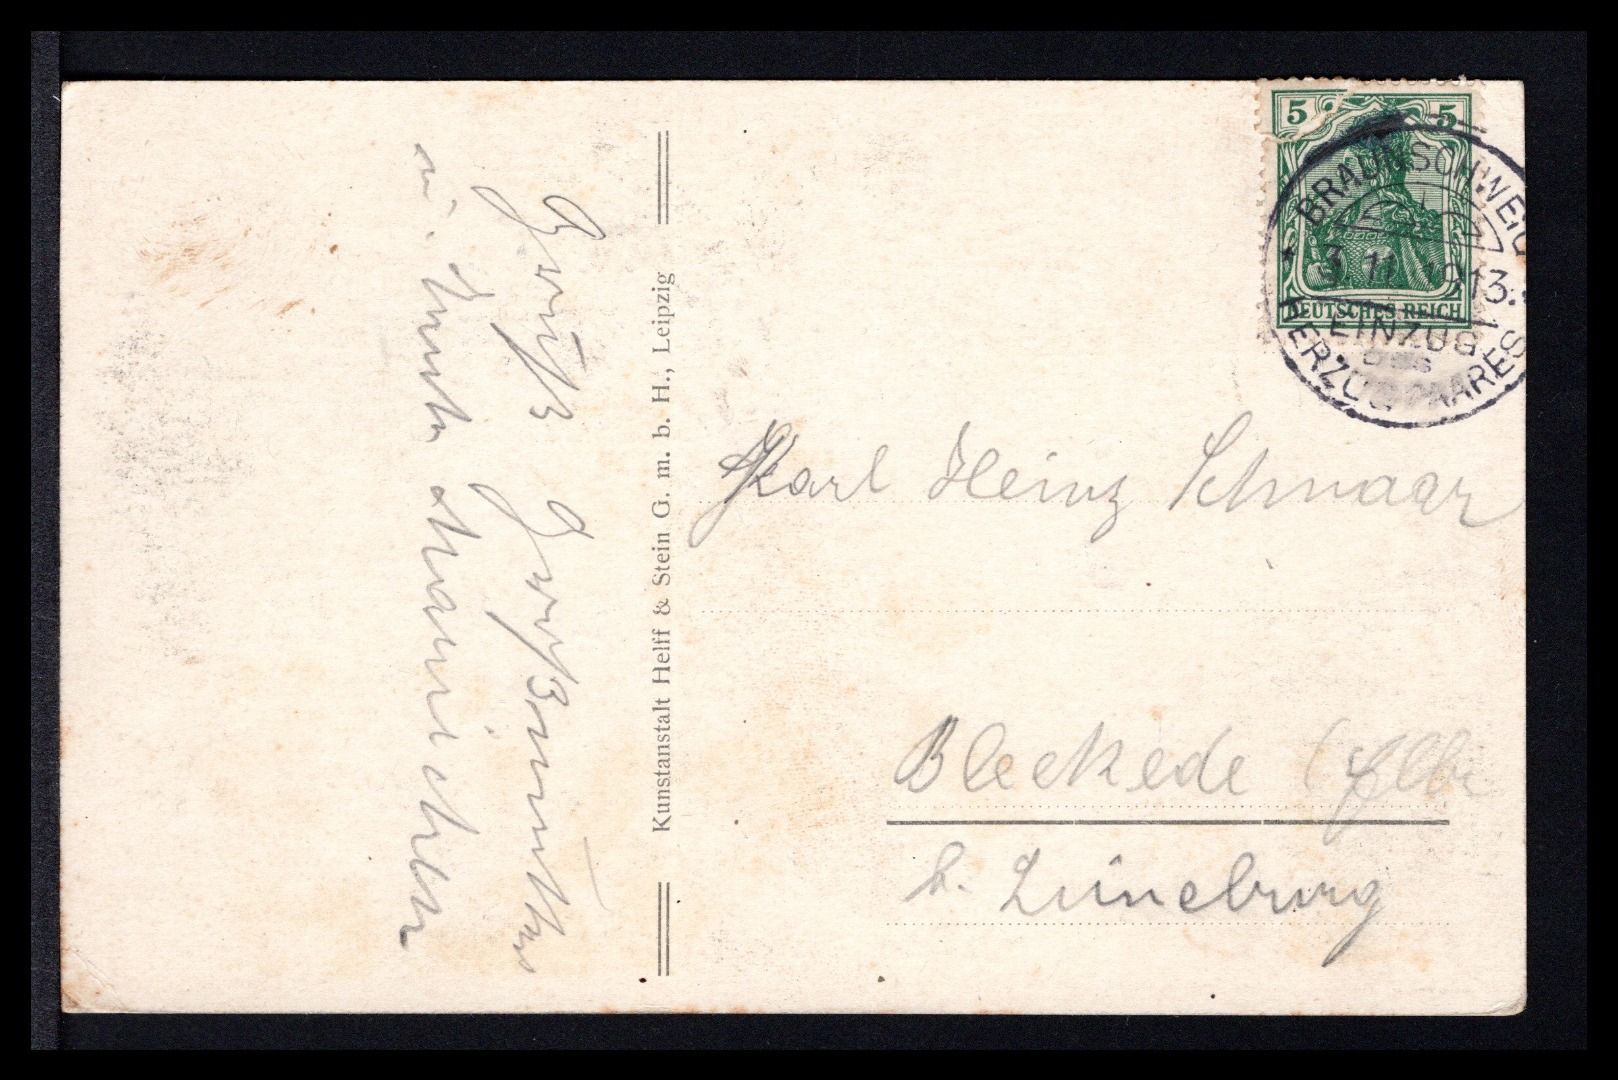 Gruß Großmutter
u. Tante
Kunstanstalt Helff & Stein G. m. b. H., Leipzig
5 5
DEUTSCHES REICH
BRAUNSCHWEIG
3.11.1913.
EINZUG
des
HERZOGPAARES
Karl Heinz Schnaar
Bleckede (Elbe
b. Lüneburg